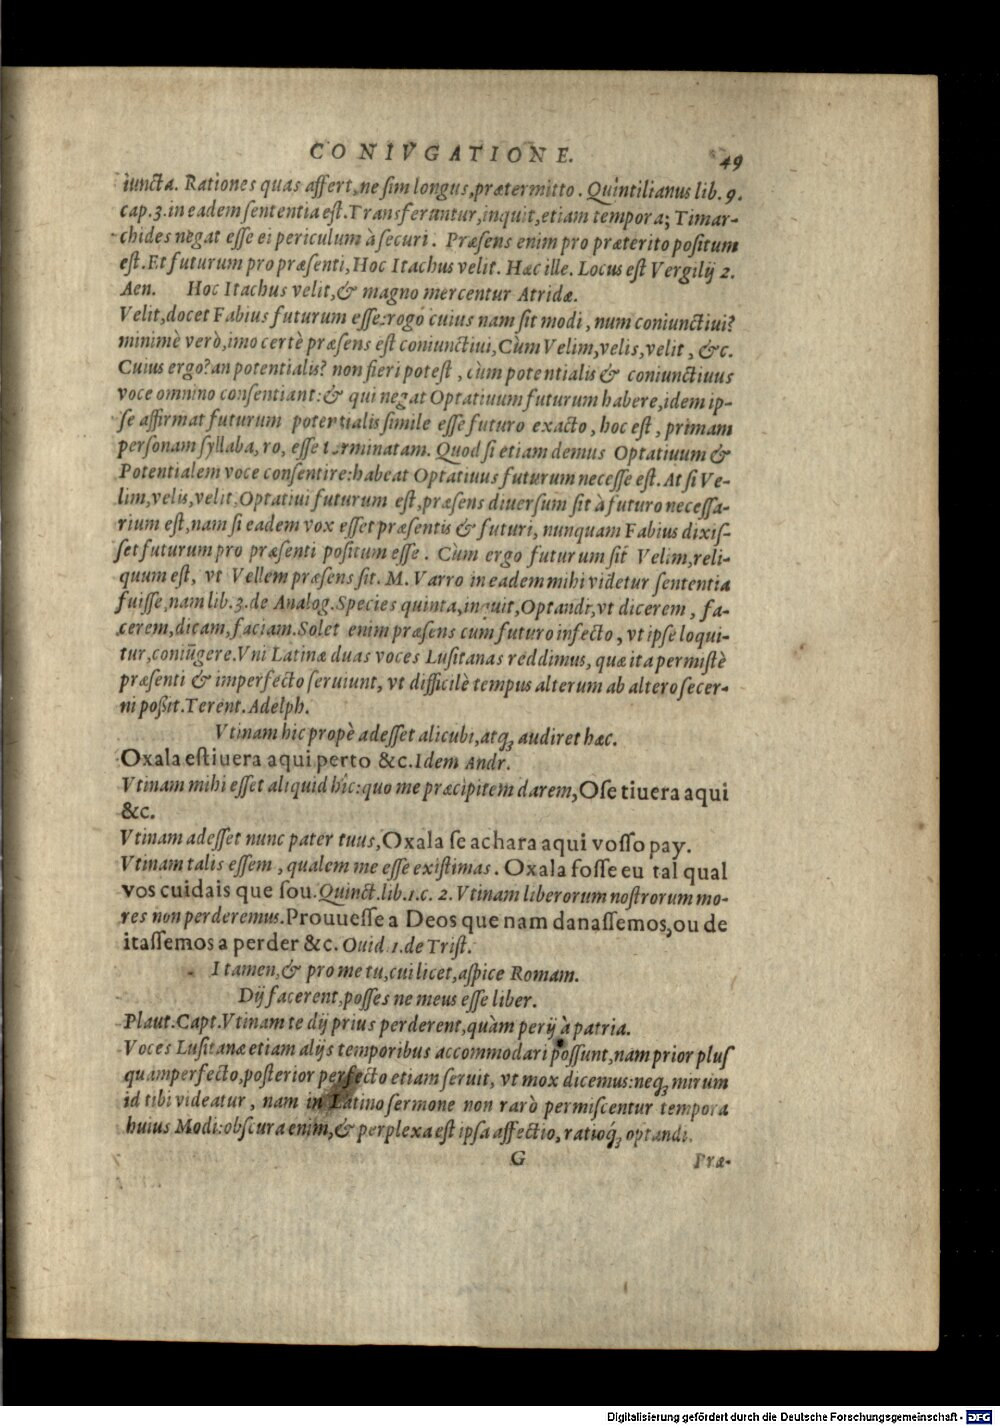 CONIVGATIONE. 49
iuncta. Rationes quas affert, ne sim longus, prætermitto. Quintilianus lib. 9.
cap. 3. in eadem sententia est. Transferuntur, inquit, etiam tempora; Timar-
chides negat esse ei periculum à securi. Præsens enim pro præterito positum
est. Et futurum pro præsenti, Hoc Itachus velit. Hæc ille. Locus est Vergilij 2.
Aen. Hoc Itachus velit, & magno mercentur Atridæ.
Velit, docet Fabius futurum esse: rogo cuius nam sit modi, num coniunctiui?
minimè verò, imo certè præsens est coniunctiui, Cùm Velim, velis, velit, &c.
Cuius ergo? an potentialis? non fieri potest, cùm potentialis & coniunctiuus
voce omnino consentiant: & qui negat Optatiuum futurum habere, idem ip-
se affirmat futurum potentialis simile esse futuro exacto, hoc est, primam
personam syllaba, ro, esse terminatam. Quod si etiam demus Optatiuum &
Potentialem voce consentire: habeat Optatiuus futurum necesse est. At si Ve-
lim, velis, velit, Optatiui futurum est, præsens diuersum sit à futuro necessa-
rium est, nam si eadem vox esset præsentis & futuri, nunquam Fabius dixis-
set futurum pro præsenti positum esse. Cùm ergo futurum sit Velim, reli-
quum est, vt Vellem præsens sit. M. Varro in eadem mihi videtur sententia
fuisse, nam lib. 3. de Analog. Species quinta, inquit, Optandi, vt dicerem, fa-
cerem, dicam, faciam. Solet enim præsens cum futuro infecto, vt ipse loqui-
tur, coniũgere. Vni Latinæ duas voces Lusitanas reddimus, quæ ita permistè
præsenti & imperfecto seruiunt, vt difficilè tempus alterum ab altero secer-
ni possit. Terent. Adelph.
Vtinam hic propè adesset alicubi, atq; audiret hæc.
Oxala estiuera aqui perto &c. Idem Andr.
Vtinam mihi esset aliquid hîc: quo me præcipitem darem, Ose tiuera aqui
&c.
Vtinam adesset nunc pater tuus, Oxala se achara aqui vosso pay.
Vtinam talis essem, qualem me esse existimas. Oxala fosse eu tal qual
vos cuidais que sou. Quinct. lib. 1. c. 2. Vtinam liberorum nostrorum mo-
res non perderemus. Prouuesse a Deos que nam danassemos, ou de
itassemos a perder &c. Ouid. 1. de Trist.
I tamen, & pro me tu, cui licet, aspice Romam.
Dij facerent, posses ne meus esse liber.
Plaut. Capt. Vtinam te dij prius perderent, quàm perij à patria.
Voces Lusitanæ etiam alijs temporibus accommodari possunt, nam prior plus
quamperfecto, posterior perfecto etiam seruit, vt mox dicemus: neq; mirum
id tibi videatur, nam in Latino sermone non rarò permiscentur tempora
huius Modi: obscura enim, & perplexa est ipsa affectio, ratioq́; optandi.
G Præ-
Digitalisierung gefördert durch die Deutsche Forschungsgemeinschaft - DFG